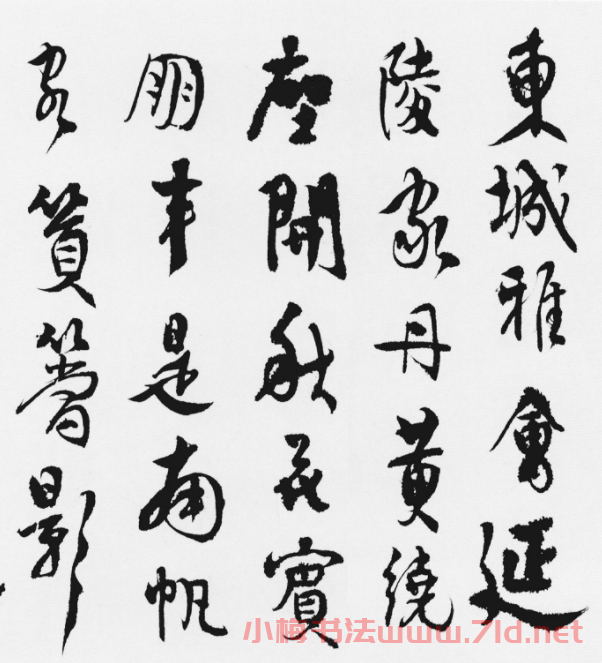 東城雅會延
陵家丹黄繞
座開秋花賓
朋半是南帆
客篔簹影
小梅书法www.7ld.net